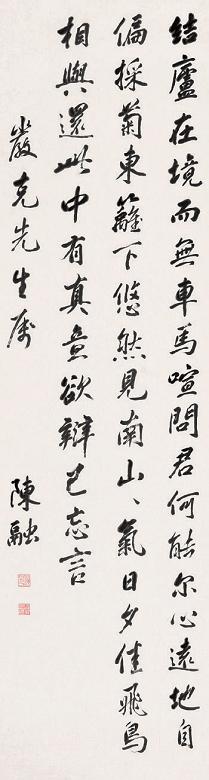 結廬在境而無車馬喧問君何能尔心遠地自
偏採菊東籬下悠然見南山、氣日夕佳飛鳥
相與還此中有真意欲辯已忘言
嚴克先生属
陳融